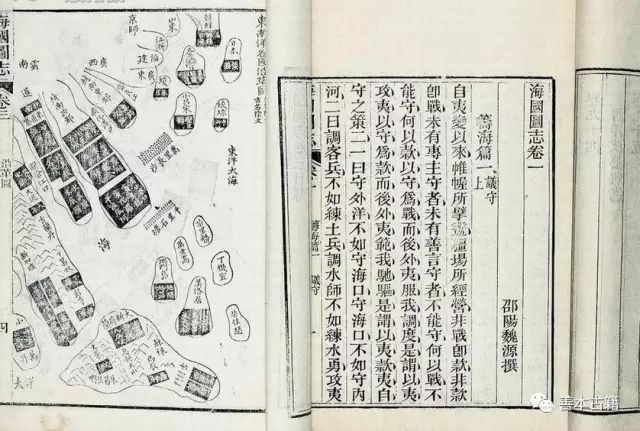 海國圖志卷一
邵陽魏源撰
籌海篇一 議守上
自夷變以來帷幄所擘畫疆場所經營非戰卽款非款
卽戰未有專主守者未有善言守者不能守何以戰不
能守何以款以守爲戰而後外夷服我調度是謂以夷
攻夷以守爲款而後外夷範我馳驅是謂以夷款夷自
守之策二一曰守外洋不如守海口守海口不如守內
河二曰調客兵不如練土兵調水師不如練水勇攻夷
海國圖志
籌海篇一 議守
一
東南洋各國沿革圖
古名陰文
日本
朝鮮
山東
京師
琉球
東洋大海
廣西
雲南
海
丁機宜
美洛居
大洋
海國圖志
卷三
沿革圖
四
善本古籍